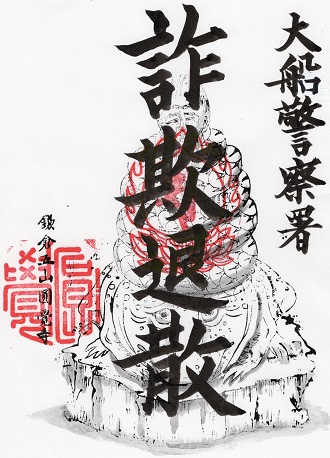 大船警察署
詐欺退散
鎌倉五山圓覚寺